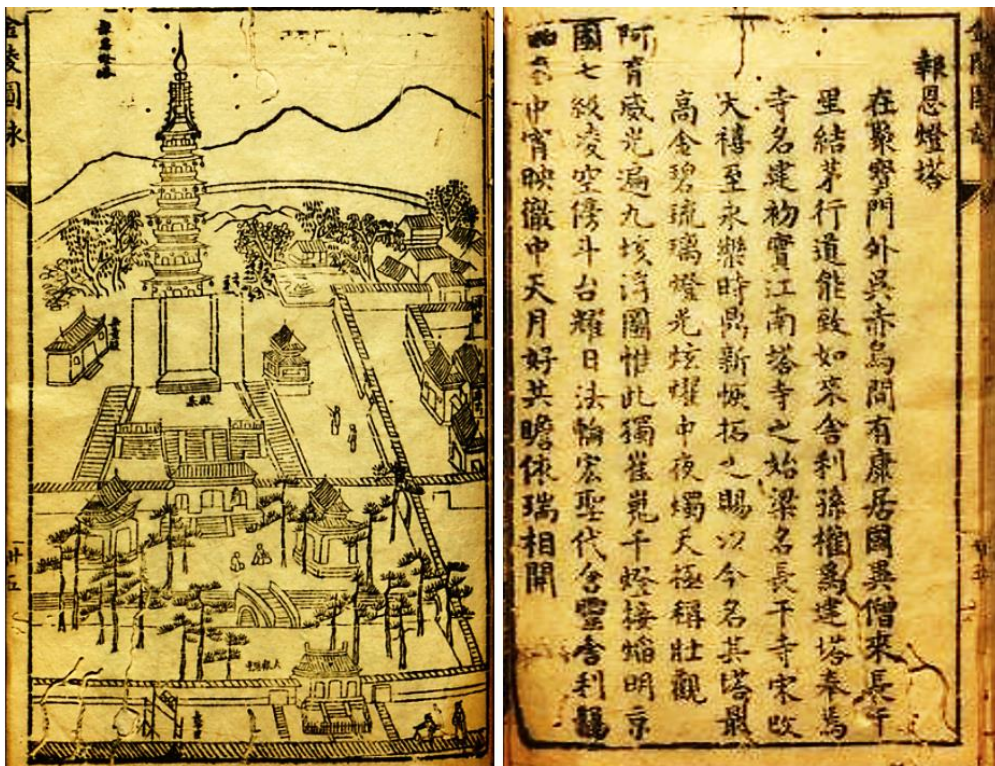 金陵圖詠
報恩燈塔
殿基
卅五
報恩燈塔
在聚寳門外吳赤烏間有康居國異僧來長干
里結茅行道能致如来舍利孫權爲建塔奉焉
寺名建初實江南塔寺之始梁名長干寺宋改
天禧至永樂時鼎新恢拓之賜以今名其塔最
高金碧琉璃燈光炫耀中夜燭天極稱壯觀
阿育威光遍九垓浮圖惟此獨崔嵬千燈接熖明京
國七級凌空傍斗台耀日法輪宏聖代含靈舍利
中宵映徹中天月好共瞻依瑞相開